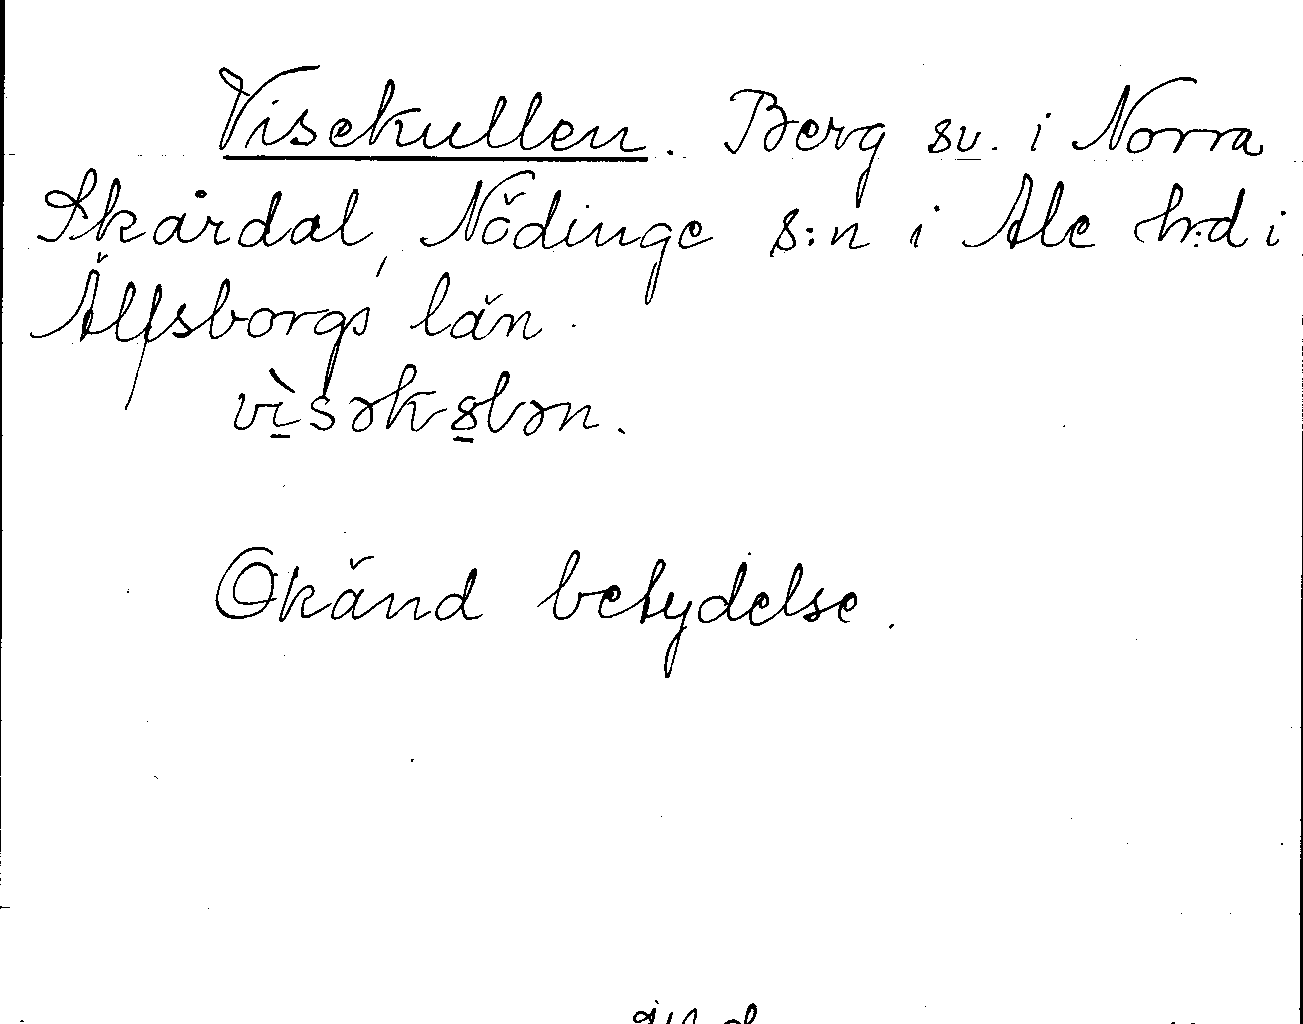 Visekullen. Berg sv. i Norra
Skårdal, Nödinge s:n i Ale h:d i
Älfsborgs län.
vìsəkslən.
Okänd betydelse.